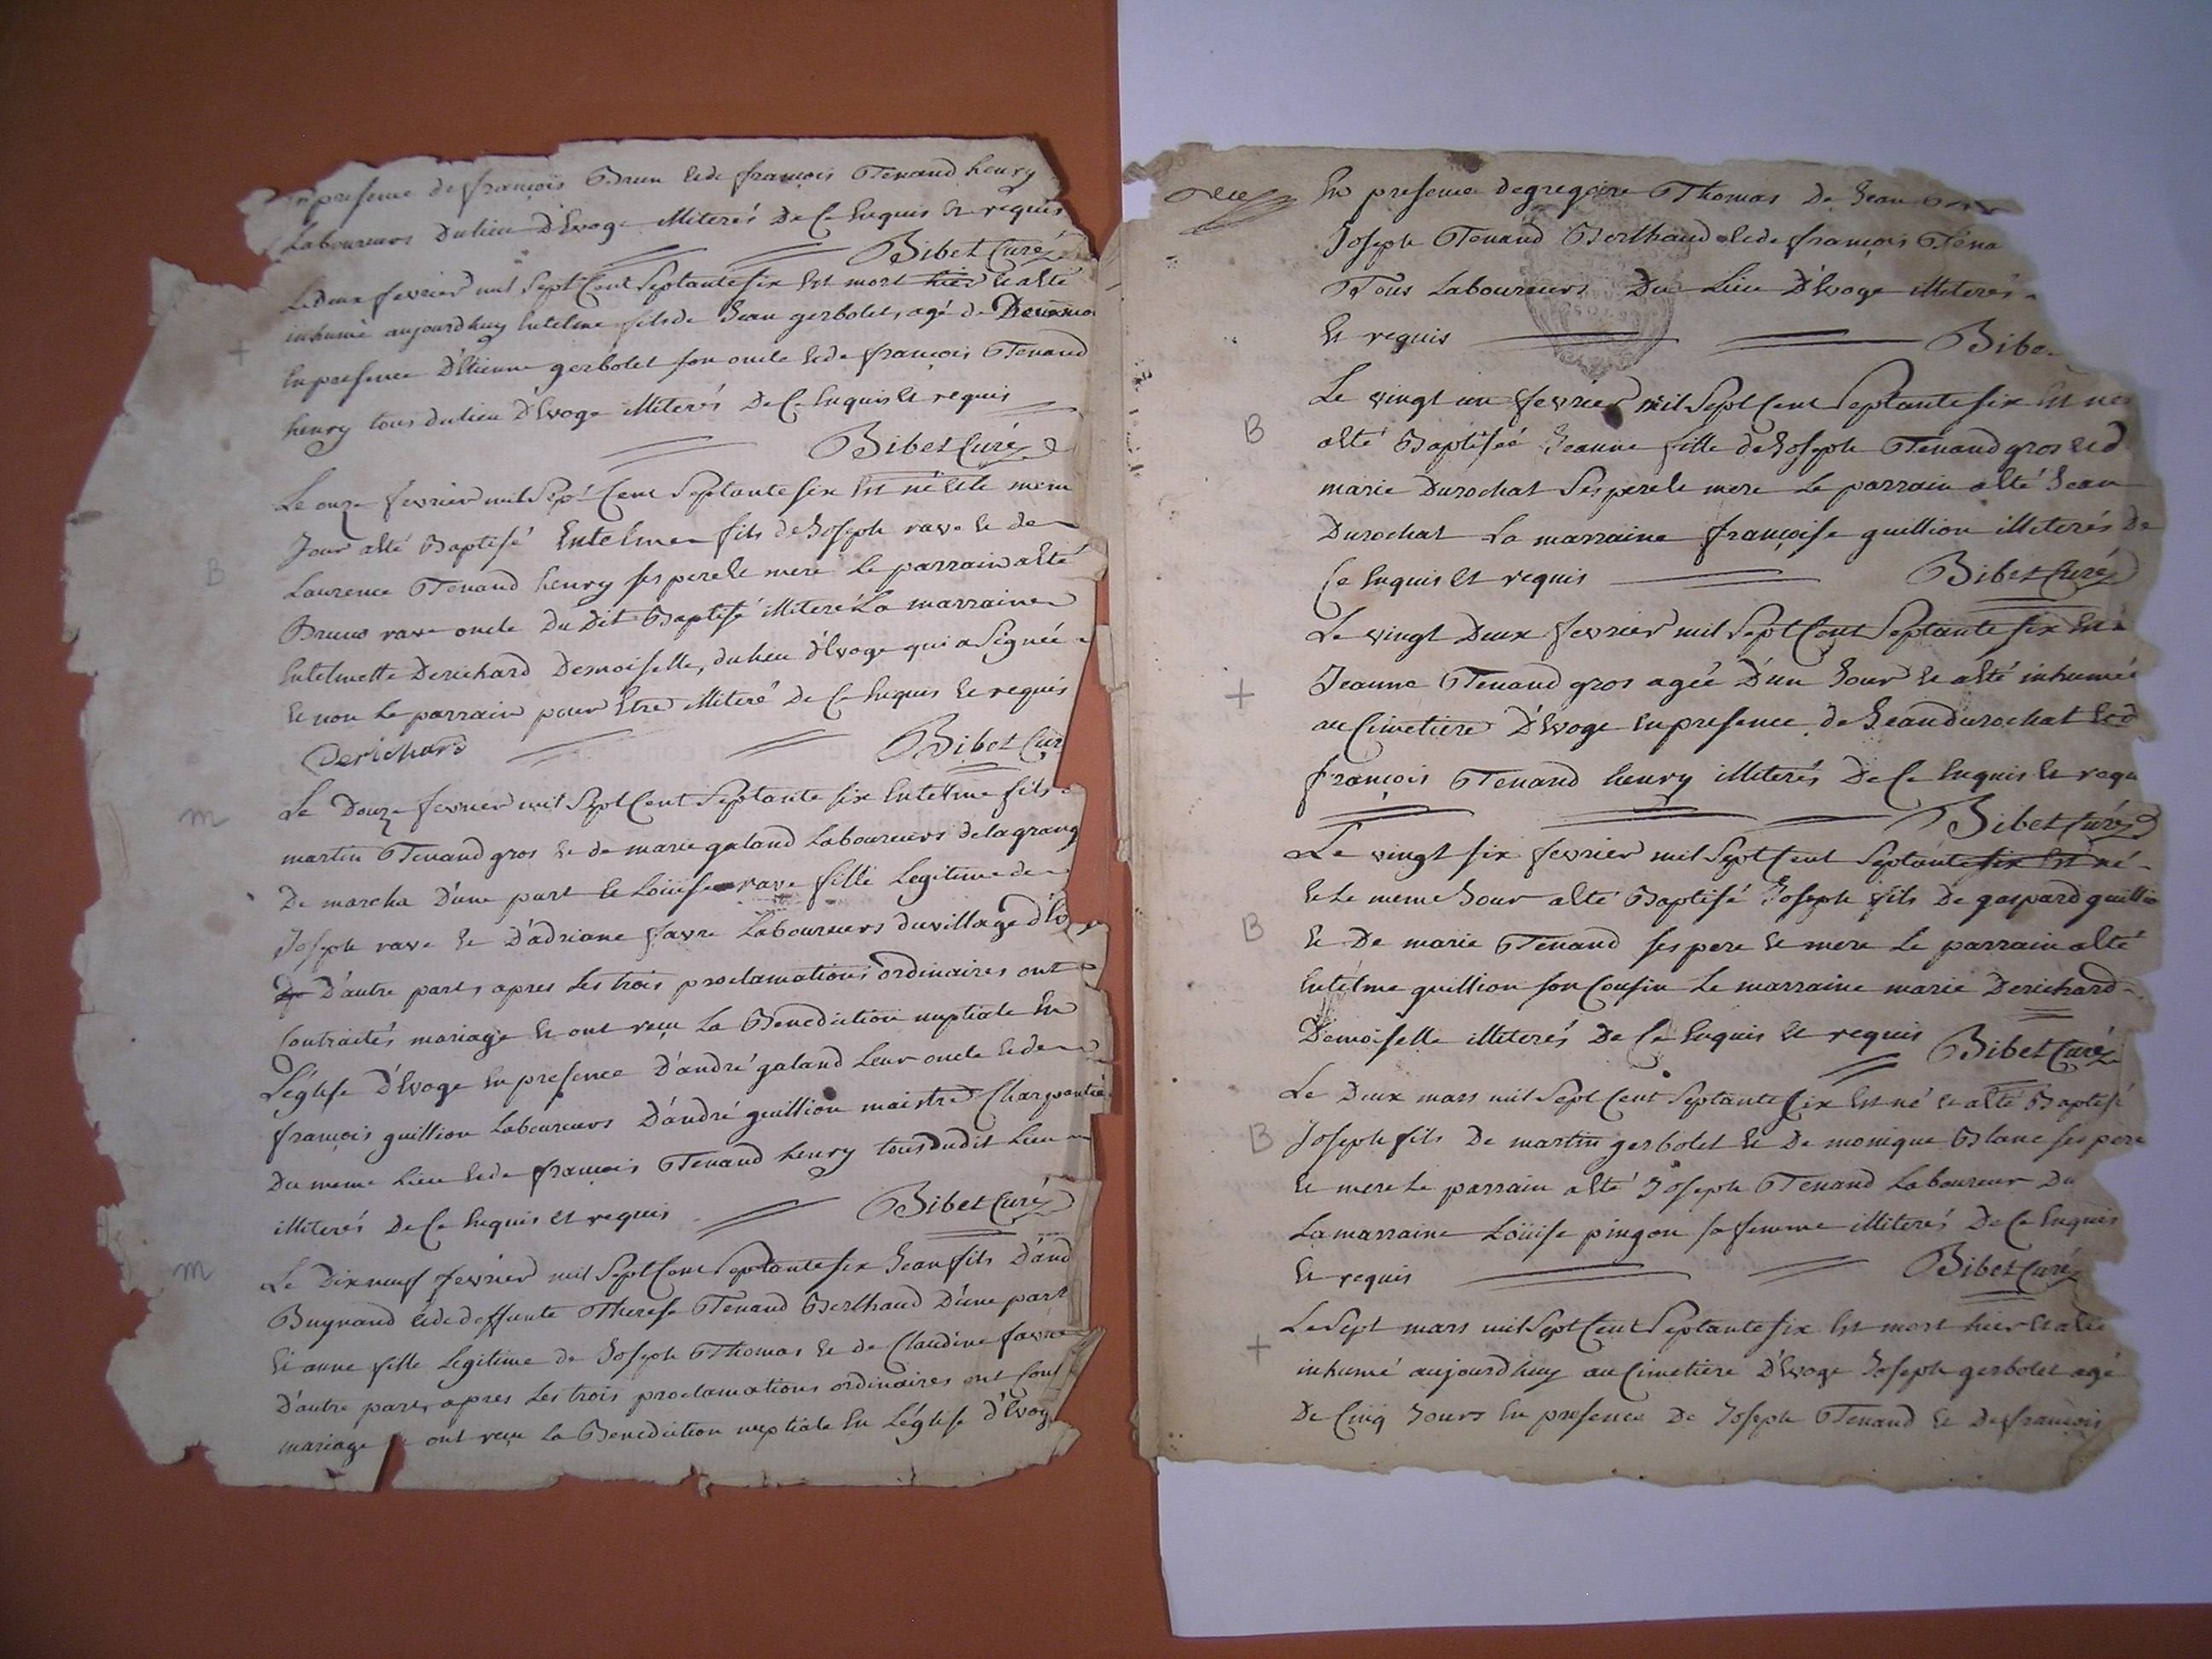 presence de françois Brun et de françois Tenand henry
Laboureurs du lieu D'Evoge illiterés De Ce Enquis Et requis
Bibet Curé
Le Deux fevrier mil Sept Cent Septante six Est mort hier et a esté
inhumé aujourdhuy Entelme fils de Jean gerbolet, agé de
En presence D'Etienne gerbolet son oncle et de françois Tenand
henry tous du lieu D'Evoge illiterés De Ce Enquis Et requis
Bibet Curé
Le onze fevrier mil Sept Cent Septante six Est né et le meme
B
Jour a esté Baptisé Entelme fils de Joseph rave et de
Laurence Tenand henry ses pere et mere Le parrain a esté
Bruno rave oncle Du Dit Baptisé illiteré La marraine
Entelmette Derichard Demoiselle, du lieu d'Evoge qui a Signée
et non Le parrain pour Etre illiteré De Ce Enquis et requis
Derichard Bibet Cur
m
Le Douze fevrier mil Sept Cent Septante six Entelme fils
martin Tenand gros et de marie galand Laboureurs de la grang
De marcha D'une part et Loüise rave fille Legitime de
Joseph rave et D'adriane favre Laboureurs du village d'Ev
D'autre part, apres Les trois proclamations ordinaires ont
Contractés mariage et ont reçu La Benediction nuptiale En
L'église D'Evoge En presence D'andré galand Leur oncle et de
françois guillion Laboureurs D'andré guillion maistre Charpentie
Du meme Lieu et de françois Tenand henry tous dudit Lieu
illiterés De Ce Enquis Et requis Bibet Curé
m
Le Dix neuf fevrier mil Sept Cent Septante six Jean fils D'and
Buynand et de deffunte Therese Tenand Berthaud D'une part
Et anne fille Legitime de Joseph Thomas et de Claudine favre
D'autre part, apres Les trois proclamations ordinaires ont Cont
mariage ont reçu La Benediction nuptiale En L'église d'Evog
En presence de gregoire Thomas De Jean
Joseph Tenand Berthaud et de françois Tena
Tous Laboureurs Du Lieu D'Evoge illiterés
Et requis Bibe
Le vingt un fevrier mil Sept Cent Septante six Est née
B
a esté Baptiséé Jeanne fille de Joseph Tenand gros et d
marie Durochat Ses pere et mere Le parrain a esté Jean
Durochat La marraine françoise guillion illiterés De
Ce Enquis Et requis Bibet Curé
Le vingt Deux fevrier mil Sept Cent Septante six Est
Jeanne Tenand gros agée D'un Jour et a esté inhumée
au Cimetiere D'Evoge En presence de Jean durochat et d
françois Tenand henry illiterés De Ce Enquis et requ
Bibet Curé
Le vingt six fevrier mil Sept Cent Septante six Est né
et Le meme Jour a esté Baptisé Joseph fils De gaspard guillio
B
et De marie Tenand ses pere et mere Le parrain a esté
Entelme guillion son Cousin La marraine marie Derichard
Demoiselle illiterés De Ce Enquis Et requis Bibet Curé
Le Deux mars mil Sept Cent Septante six Est né et a esté Baptisé
B
Joseph fils De martin gerbolet et De monique Blanc ses pere
et mere Le parrain a esté Joseph Tenand Laboureur Du
La marraine Loüise pingon sa femme illiterés De Ce Enquis
Et requis Bibet Curé
Le Sept mars mil Sept Cent Septante six Est mort hier et a esté
inhumé aujourdhuy au Cimetiere D'Evoge Joseph gerbolet agé
De Cinq Jours En presence De Joseph Tenand et De françois